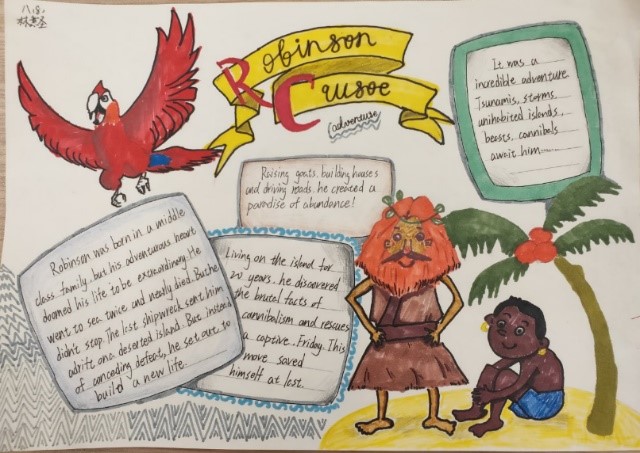 八.8.
Robinson
Crusoe
(adventure)
It was a
incredible adventure.
Tsunamis, storms,
uninhabited islands,
beasts, cannibals
await him
Raising goats, building houses
and driving roads, he created a
paradise of abundance!
Robinson was born in a middle
class family, but his adventurous heart
doomed his life to be extraordinary. He
went to sea twice and nearly died. But he
didn't stop. The last shipwreck sent him
adrift on a deserted island. But instead
of conceding defeat, he set out to
build a new life.
Living on the island for
20 years, he discovered
the brutal facts of
cannibalism and rescues
a captive, Friday. This
move saved
himself at last.